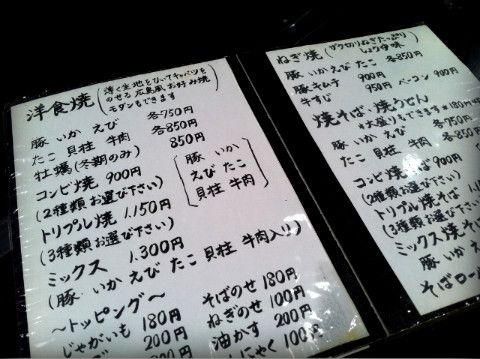 洋食焼
(薄く生地をひいてキャベツを
のせる広島風お好み焼
モダンもできます
豚 いか えび 各750円
たこ 貝柱 牛肉 各850円
牡蠣(冬期のみ) 850円
コンビ焼 900円
(2種類お選び下さい)
トリプル焼 1.150円
(3種類お選び下さい)
豚 いか
えび たこ
貝柱 牛肉
ミックス 1.300円
(豚 いか えび たこ 貝柱 牛肉入り)
～トッピング～
じゃがいも 180円
200円
そばのせ 180円
ねぎのせ 100円
油かす 200円
にゃく 100円
ねぎ焼(ザク切りねぎたっぷり
しょうゆ味
豚 いか えび たこ 各850円
豚キムチ 900円
牛すじ 950円
ベーコン 900円
焼そば・焼うどん
*大盛りもできます *180円
豚 いか えび 各750円
たこ 貝柱 牛肉 各850円
コンビ焼そば 900円
(2種類お選び下さい)
トリプル焼そば 1.
(3種類お選び下さい)
ミックス焼そば
(豚 いか えび
貝柱
そばロー